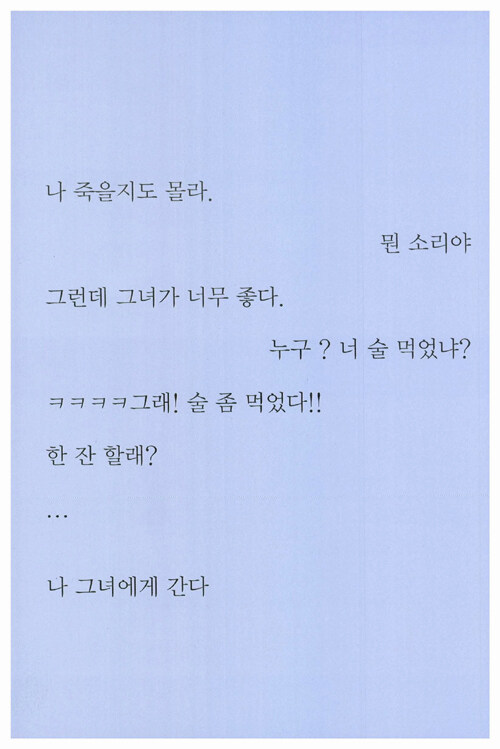 나 죽을지도 몰라.
뭔 소리야
그런데 그녀가 너무 좋다.
누구 ? 너 술 먹었냐?
ㅋㅋㅋㅋ그래! 술 좀 먹었다!!
한 잔 할래?
...
나 그녀에게 간다